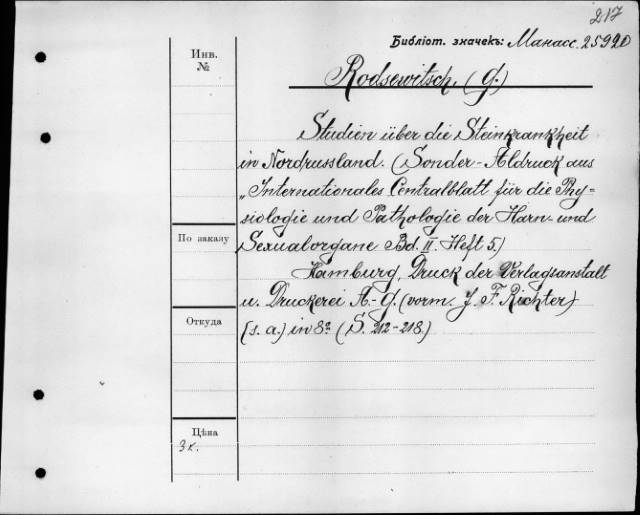 217
Библіот. значекъ: Манасс. 25920
Инв. №
Rodsewitsch, (G.)
Studien über die Steinkrankheit
in Nordrussland. (Sonder-Abdruck aus
„Internationales Centralblatt für die Phy-
siologie und Pathologie der Harn- und
По заказу
Sexualorgane Bd. II. Heft 5)
Hamburg, Druck der Verlagsanstalt
u. Druckerei A.-G. (vorm. J. F. Richter)
Откуда
[s. a.] in 8º (S. 212-218.)
Цѣна
3к.